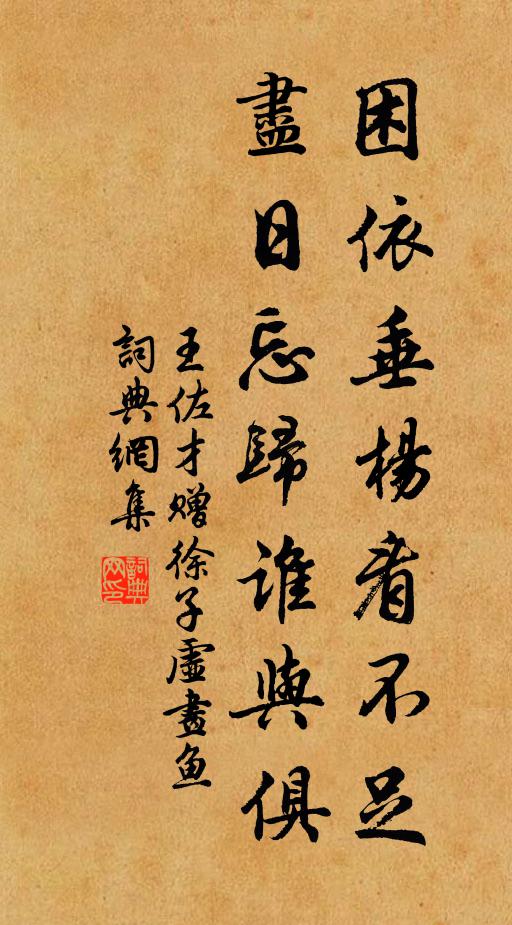 困依垂楊看不足
盡日忘歸誰與俱
王佐才贈徐子虛畫魚
詞典網集
詞典网印